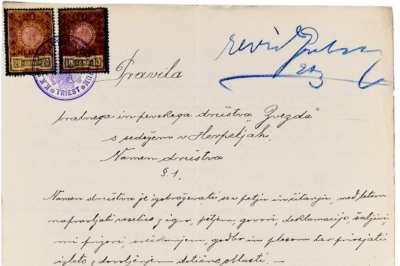 Pravila
bralnega in pevskega društva "Zvezda"
s sedežem v Herpeljah.
Namen društva
§ 1.
Namen društva je izobraževati se v petji in čitanji, med letom
napravljati veselice z igro, petjem, govori, deklamacijo, šaljivi
mi prizori, srečkanjem, godbo in plesom ter prirejati
izlete z dovoljenjem dotične oblasti. —
TRIEST